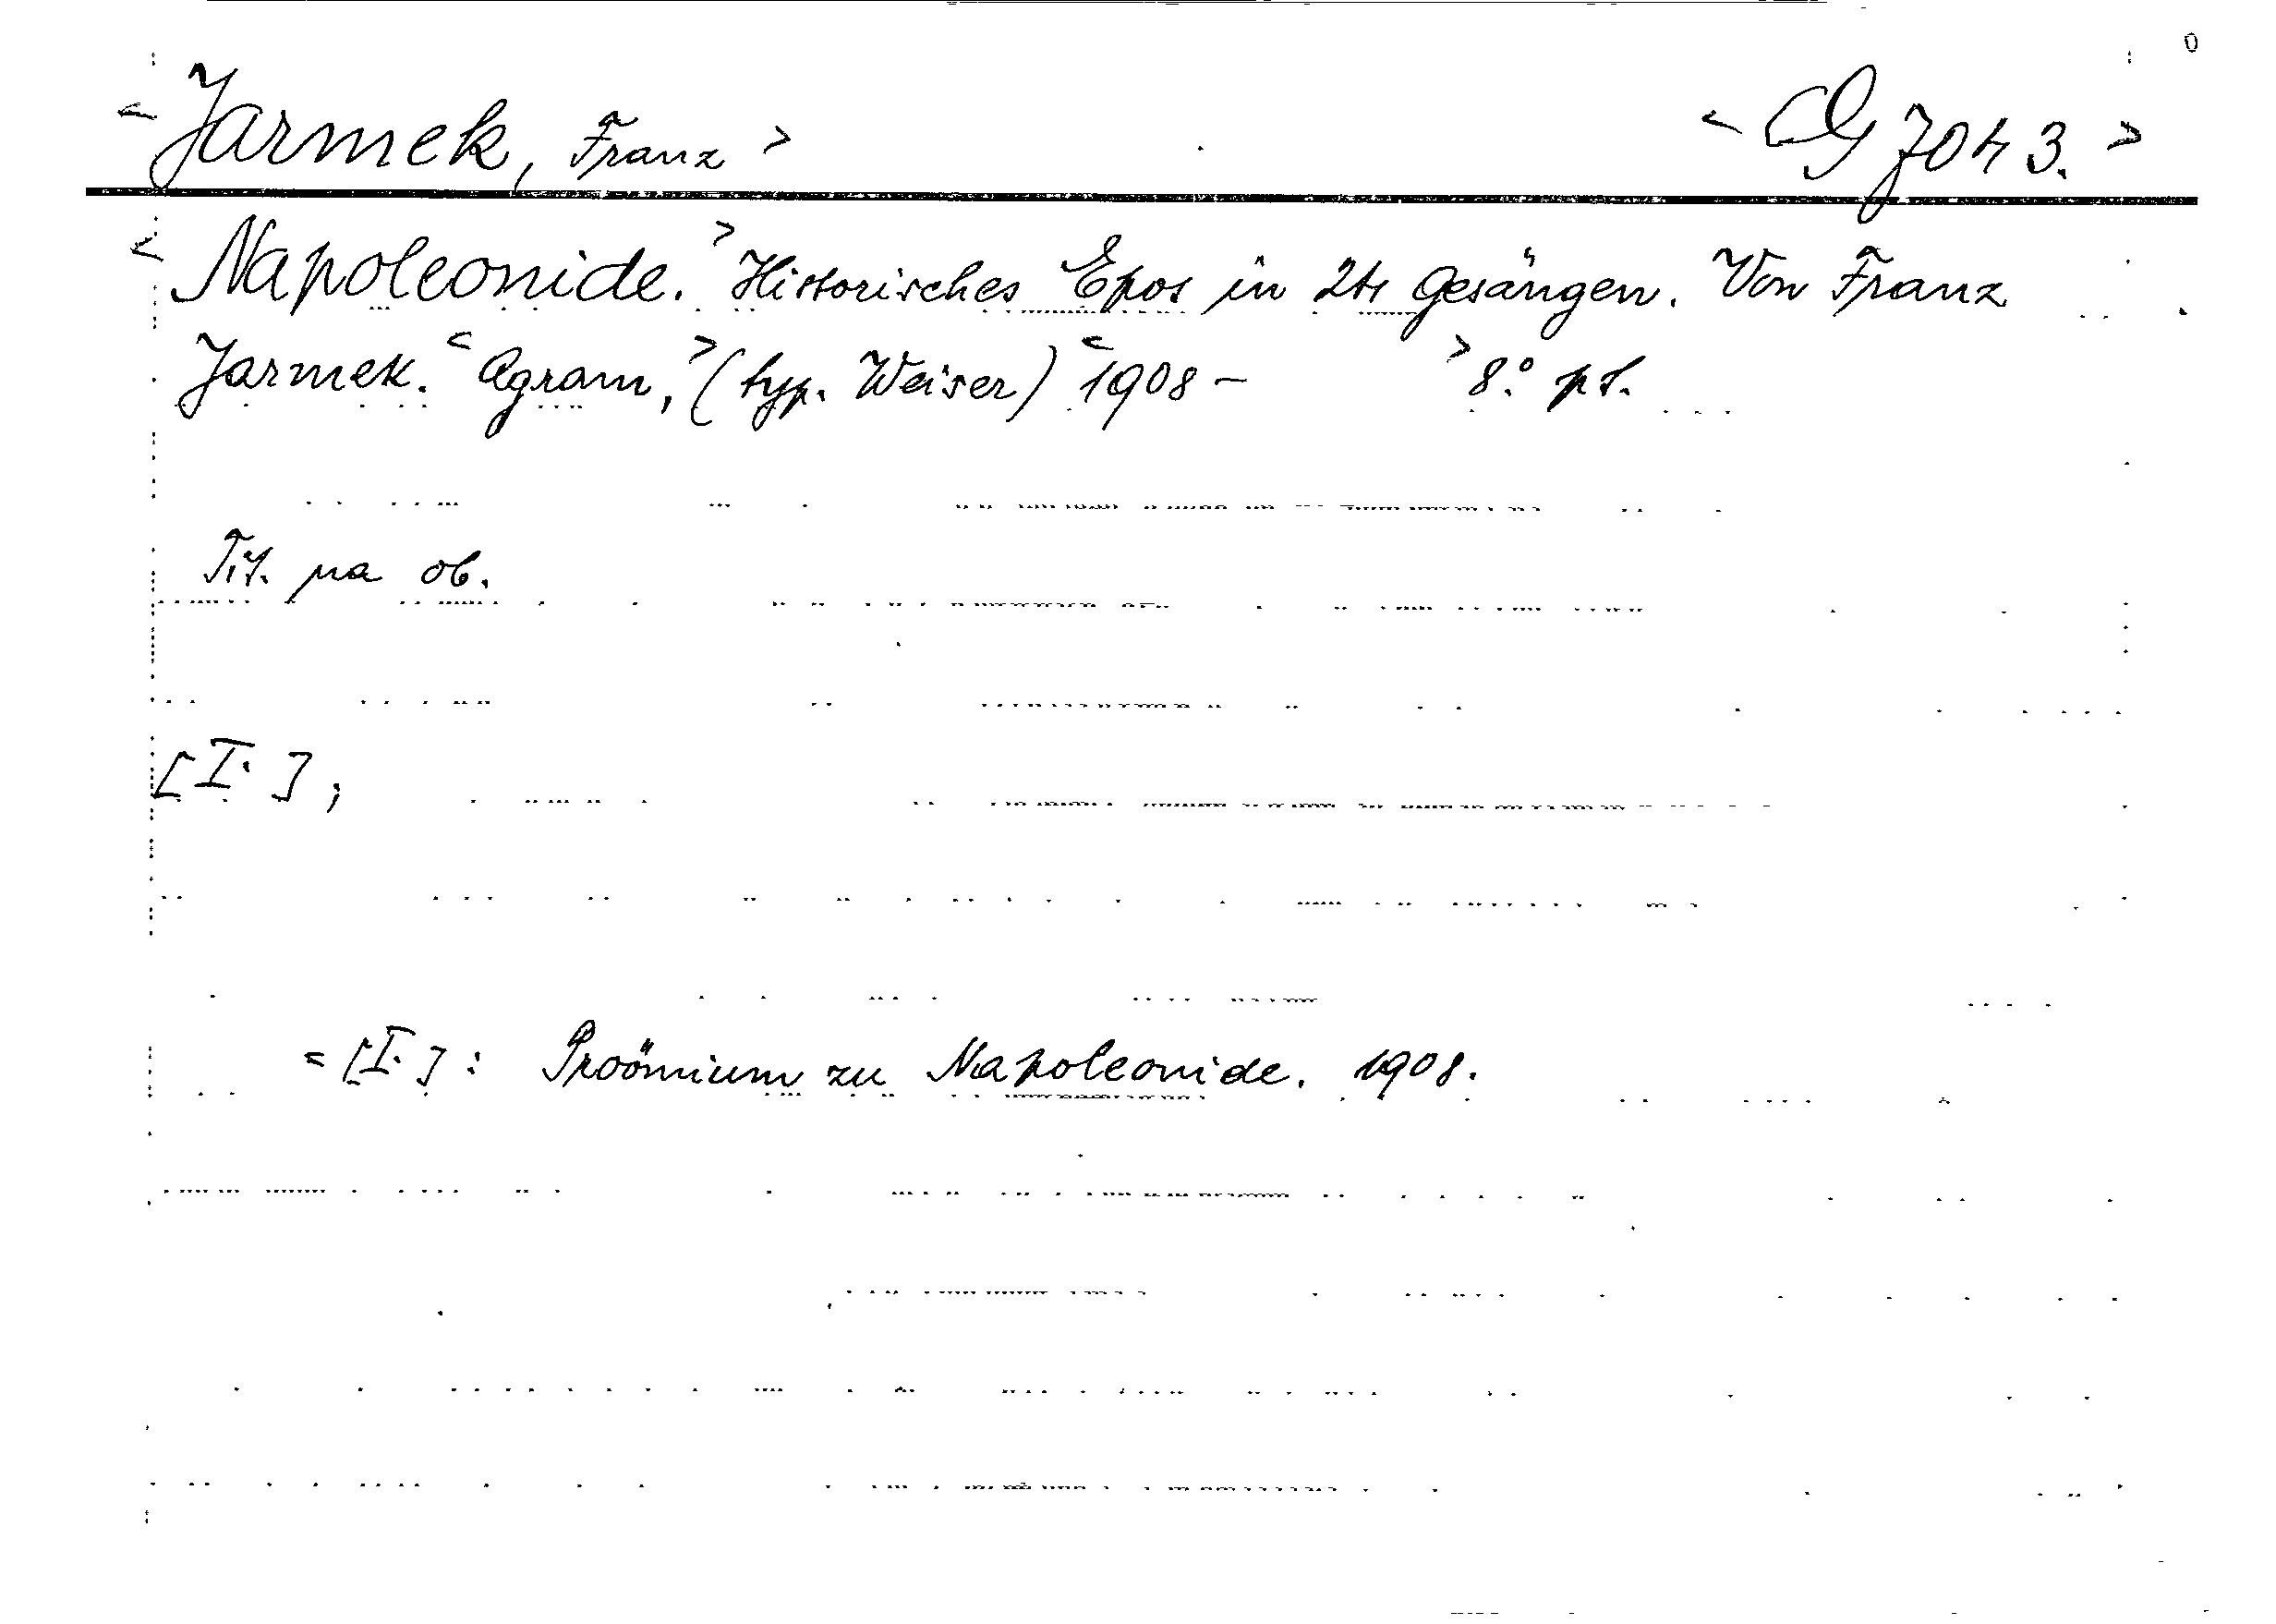 <Jarmek, Franz> <G 7043.>
<Napoleonide.> Historisches Epos in 24 Gesängen. Von Franz
Jarmek. <Agram,> (typ. Weiser) <1908 – > 8.° pt.
Tit. na ob.
[I.],
= [I.]: Proömium zu Napoleonide. 1908.